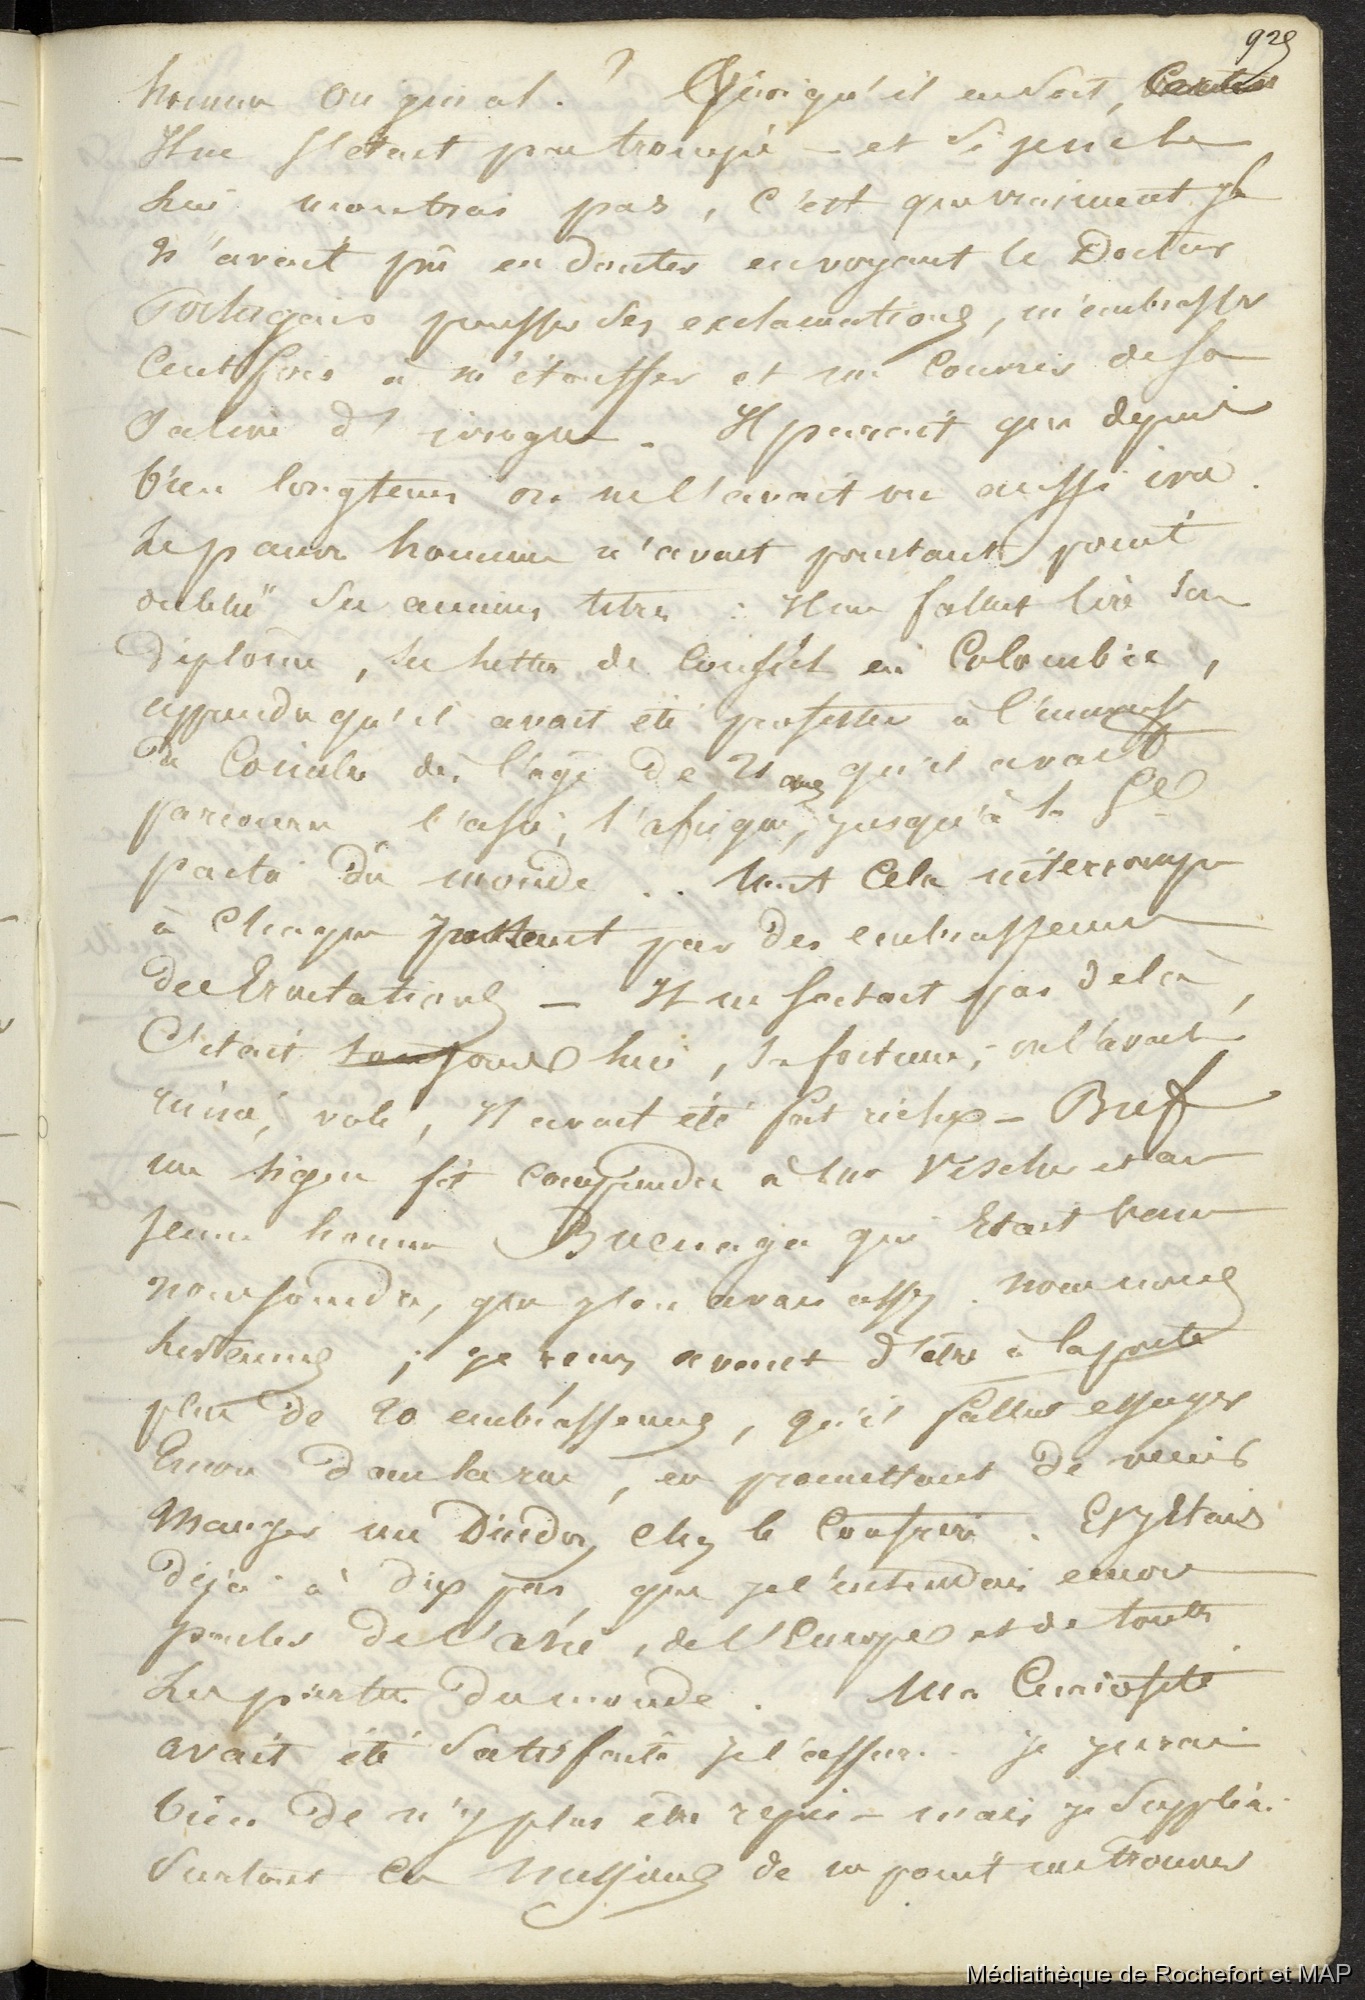 929
homme original. ? Quoiqu'il en soit,
Il ne s'était pas trompé – et si je ne le
lui montrai pas, c'est que vraiment je
n'avait pû en douter en voyant le Docteur
Portugais pousser des exclamations, m'embrasser
Cent fois à m'étouffer et me couvrir de sa
Salive d'ivrogne. Il parait que depuis
bien longtems on ne l'avait vu aussi ivre.
Le pauvre homme n'avait pourtant point
oublié ses anciens titres : Il me fallut lire son
Diplôme, ses lettres de Consul en Colombie,
apprendre qu'il avait été professeur à l'université
de Coimbre dès l'age de 21 ans qu'il avait
parcouru l'asie, l'afrique, jusqu'à la 5e
partie du monde .. tout cela interrompu
à chaque instant par des embrassemens
des Eructations – Il ne sortait pas de là,
C'était toujours lui, sa fortune, on l'avait
ruiné, volé, Il avait été fort riche – Bref
un signe fit comprendre à Mr Vischer et au
jeune homme Buenaga qui Etait venu
nous joindre, que j'en avais assez. nous nous
levames ; je reçus avant d'être à la porte
plus de 20 embrassemens, qu'il fallut essuyer
Encore dans la rue, en promettant de venir
Manger un Dindon chez le Confrère. Et j'étais
déjà à dix pas, que je l'entendais encore
parler de l'asie, de l'Europe et de toutes
les parties du monde. Ma Curiosité
avait été satisfaite je l'assure. je jurai
bien de n'y plus être repris – mais je suppliai
surtout ces Messieurs de ne point me trouver
Médiathèque de Rochefort et MAP